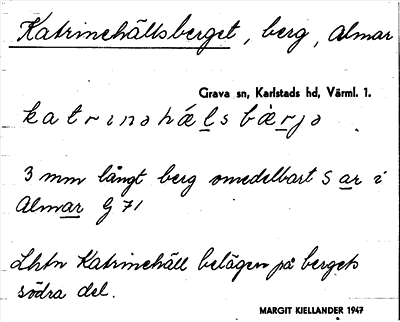 Katrinehällsberget, berg, Almar
Grava sn, Karlstads hd, Värml. 1.
katrınəhä̀l̲sbær̲jə
3 mm långt berg omedelbart S a̲r̲ i
Alma̲r̲ G 71
Lhtn Katrinehäll belägen på bergets
södra del.
MARGIT KJELLANDER 1947